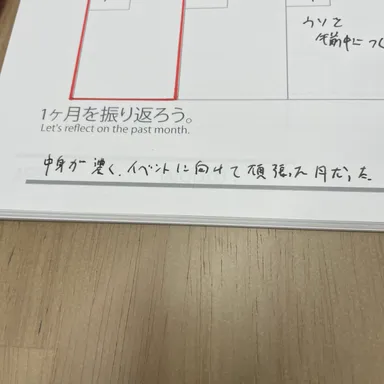 ウソで
午前中に
1ヶ月を振り返ろう。
Let's reflect on the past month.
中身が濃く、イベントに向けて頑張った月だった。